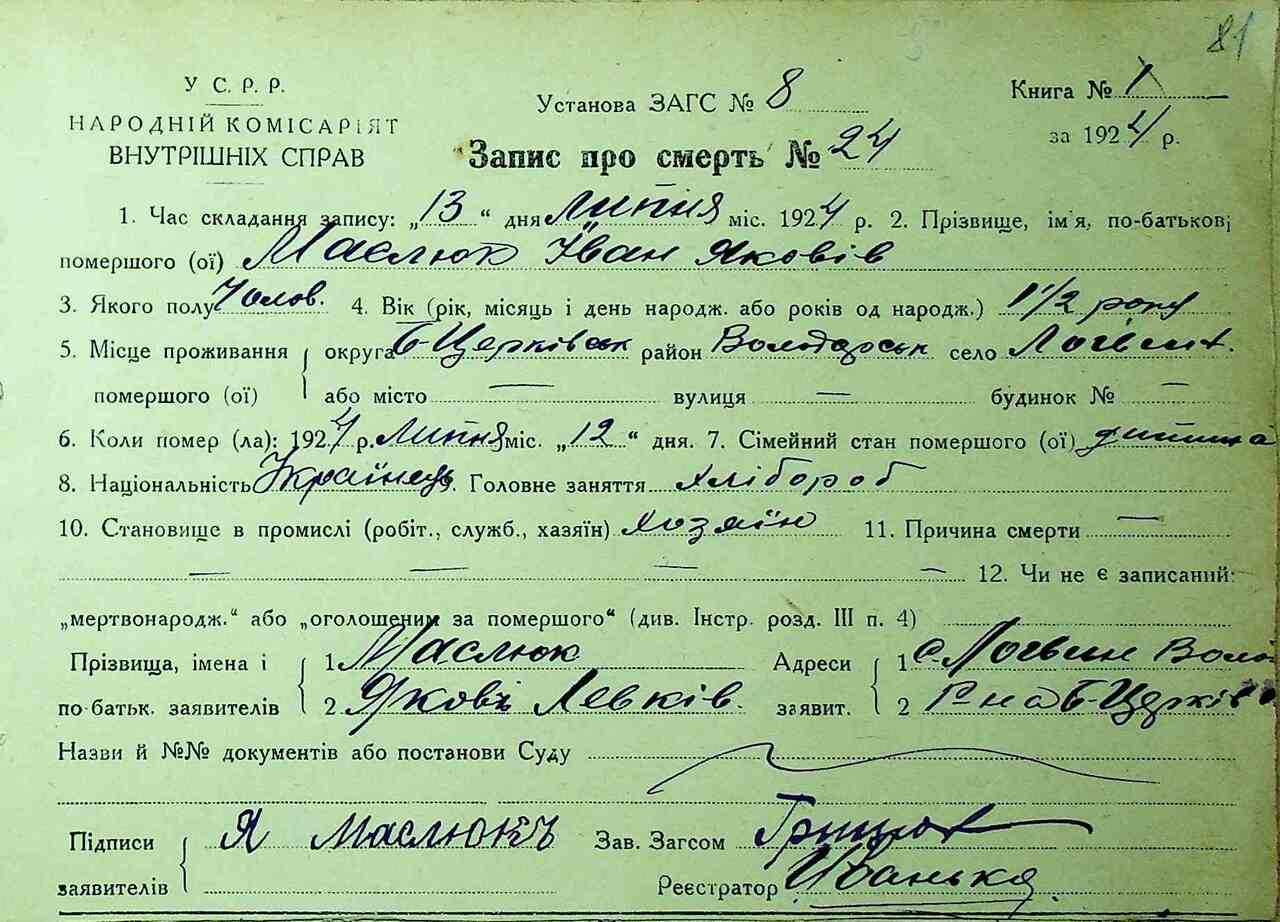 81
У С. Р. Р.
НАРОДНІЙ КОМІСАРІЯТ
ВНУТРІШНІХ СПРАВ
Установа ЗАГС № 8
Книга № 1
за 1924 р.
Запис про смерть № 24
1. Час складання запису: „13“ дня Липня міс. 1924 р. 2. Прізвище, ім'я, по-батькові
помершого (ої) Маслюк Іван Яковів
3. Якого полу Чолов. 4. Вік (рік, місяць і день народж. або років од народж.) 1 1/2 року
5. Місце проживання округа Б-Церківськ район Володарськ село Логвин.
помершого (ої) або місто — вулиця — будинок № —
6. Коли помер (ла): 1924 р. Липня міс. „12“ дня. 7. Сімейний стан помершого (ої) дитина
8. Національність Українець 9. Головне заняття хлібороб
10. Становище в промислі (робіт., служб., хазяїн) хозяїн 11. Причина смерти —
— — — — 12. Чи не є записаний:
„мертвонародж.“ або „оголошеним за помершого“ (див. Інстр. розд. III п. 4)
Прізвища, імена і 1 Маслюк Адреси 1 с. Логвин Воло
по-батьк. заявителів 2 Яковъ Левків. заявит. 2 Р-на Б-Церків
Назви й №№ документів або постанови Суду
Підписи Я Маслюкъ Зав. Загсом
заявителів Реєстратор Иванько